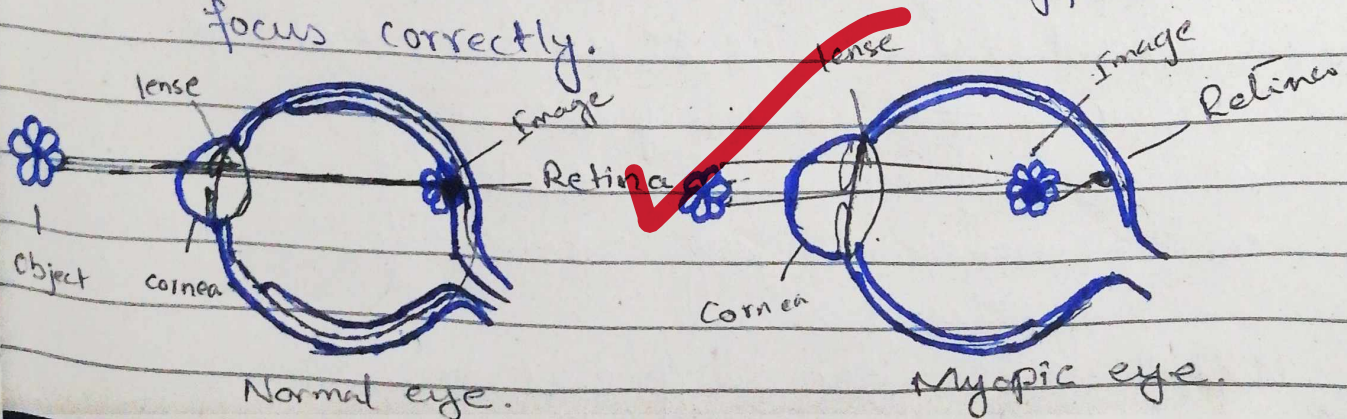 focus correctly.
lense
Image
Retina
Object
Cornea
Normal eye.
lense
Image
Retina
Cornea
Myopic eye.